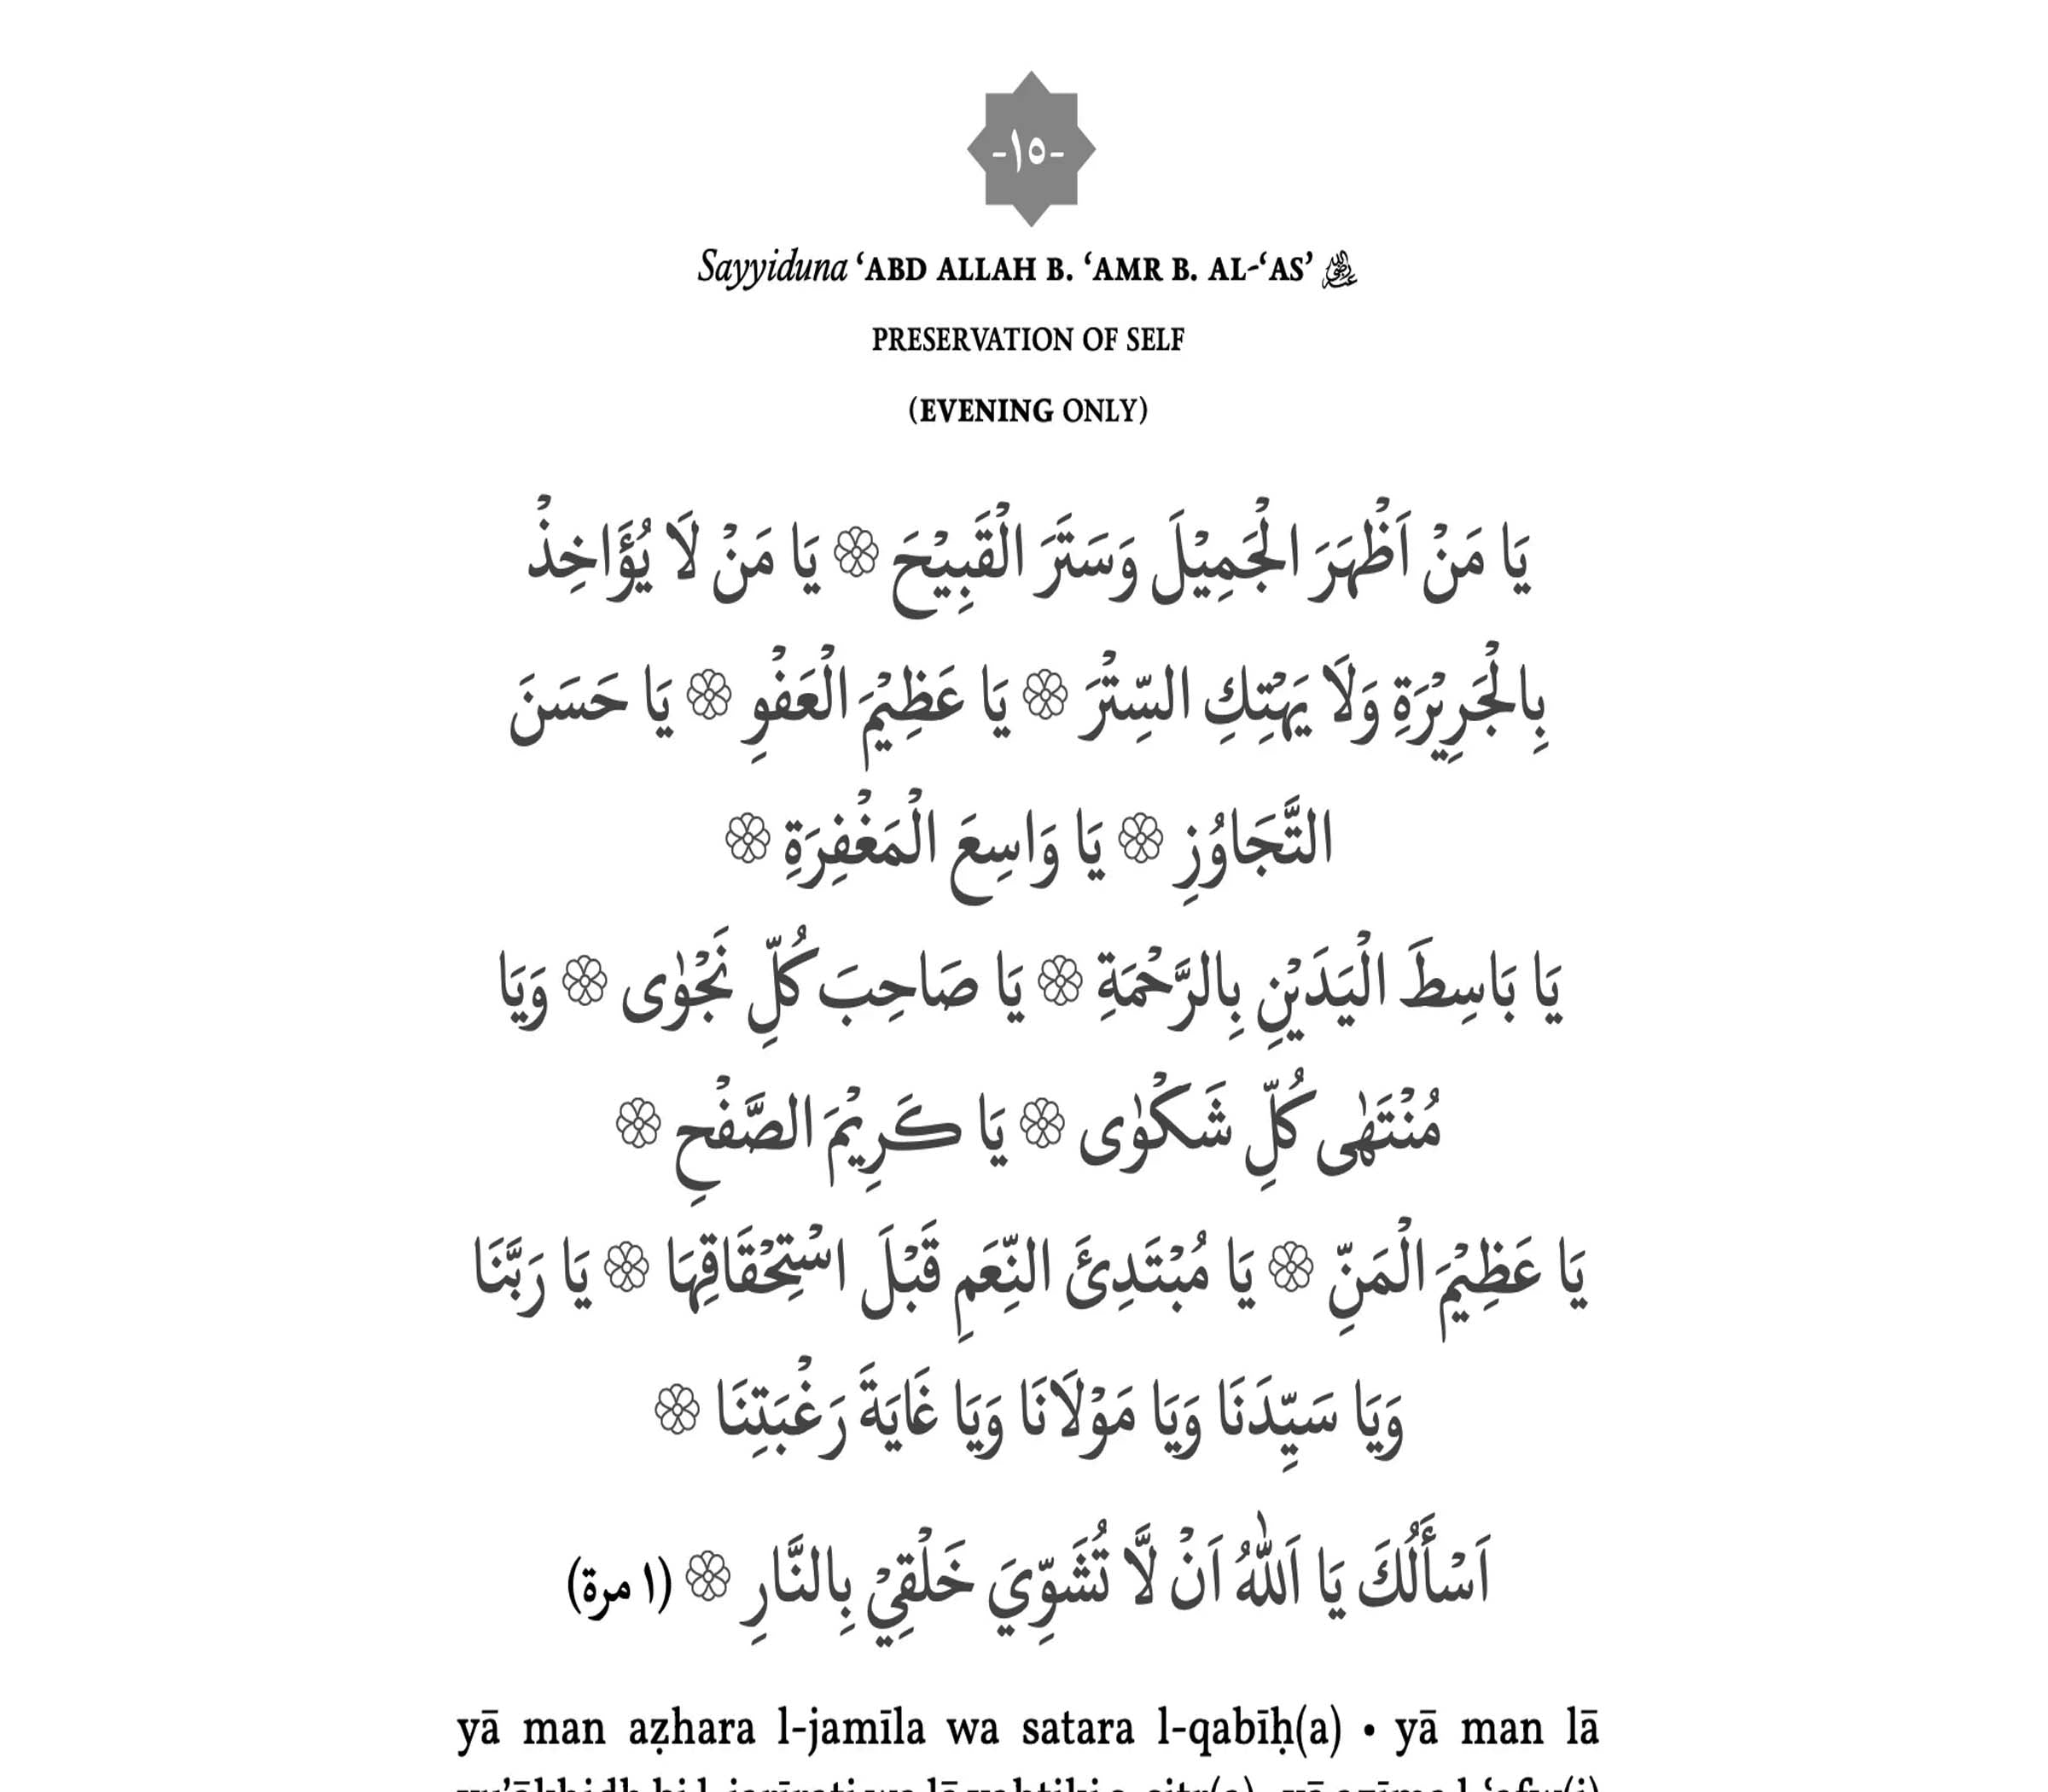 -١٥-
Sayyiduna ‘ABD ALLAH B. ‘AMR B. AL-‘AS’ رضي الله عنه
PRESERVATION OF SELF
(EVENING ONLY)
يَا مَنْ اَظْهَرَ الْجَمِيْلَ وَسَتَرَ الْقَبِيْحَ ۞ يَا مَنْ لَا يُؤَاخِذْ
بِالْجَرِيْرَةِ وَلَا يَهْتِكِ السِّتْرَ ۞ يَا عَظِيْمَ الْعَفْوِ ۞ يَا حَسَنَ
التَّجَاوُزِ ۞ يَا وَاسِعَ الْمَغْفِرَةِ ۞
يَا بَاسِطَ الْيَدَيْنِ بِالرَّحْمَةِ ۞ يَا صَاحِبَ كُلِّ نَجْوٰى ۞ وَيَا
مُنْتَهٰى كُلِّ شَكْوٰى ۞ يَا كَرِيْمَ الصَّفْحِ ۞
يَا عَظِيْمَ الْمَنِّ ۞ يَا مُبْتَدِئَ النِّعَمِ قَبْلَ اسْتِحْقَاقِهَا ۞ يَا رَبَّنَا
وَيَا سَيِّدَنَا وَيَا مَوْلَانَا وَيَا غَايَةَ رَغْبَتِنَا ۞
اَسْأَلُكَ يَا اَللّٰهُ اَنْ لَّا تُشَوِّيَ خَلْقِيْ بِالنَّارِ ۞ (١ مرة)
yā man aẓhara l-jamīla wa satara l-qabīḥ(a) • yā man lā